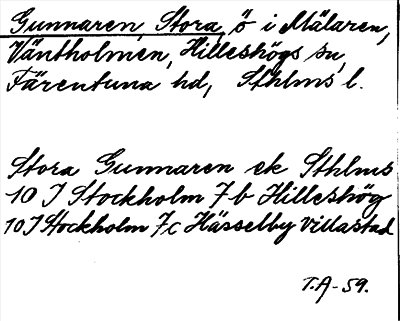 Gunnaren, Stora, ö i Mälaren,
Väntholmen, Hilleshögs sn,
Färentuna hd, Sthlms l.
Stora Gunnaren ek Sthlms
10 I Stockholm 7b Hilleshög
10 I Stockholm 7c Hässelby Villastad
T.A-59.